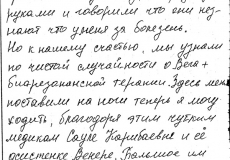 руками и говорили что они нез-
нают что у меня за болезнь.
Но к нашему счастью, мы узнали
по чистой случайности о Вега+
биорезонансной терапии. Здесь меня
поставили на ноги теперь я могу
ходить, благодаря этим чутким
медикам Сауле Каригаевне и её
асистенке Венере. Большое им